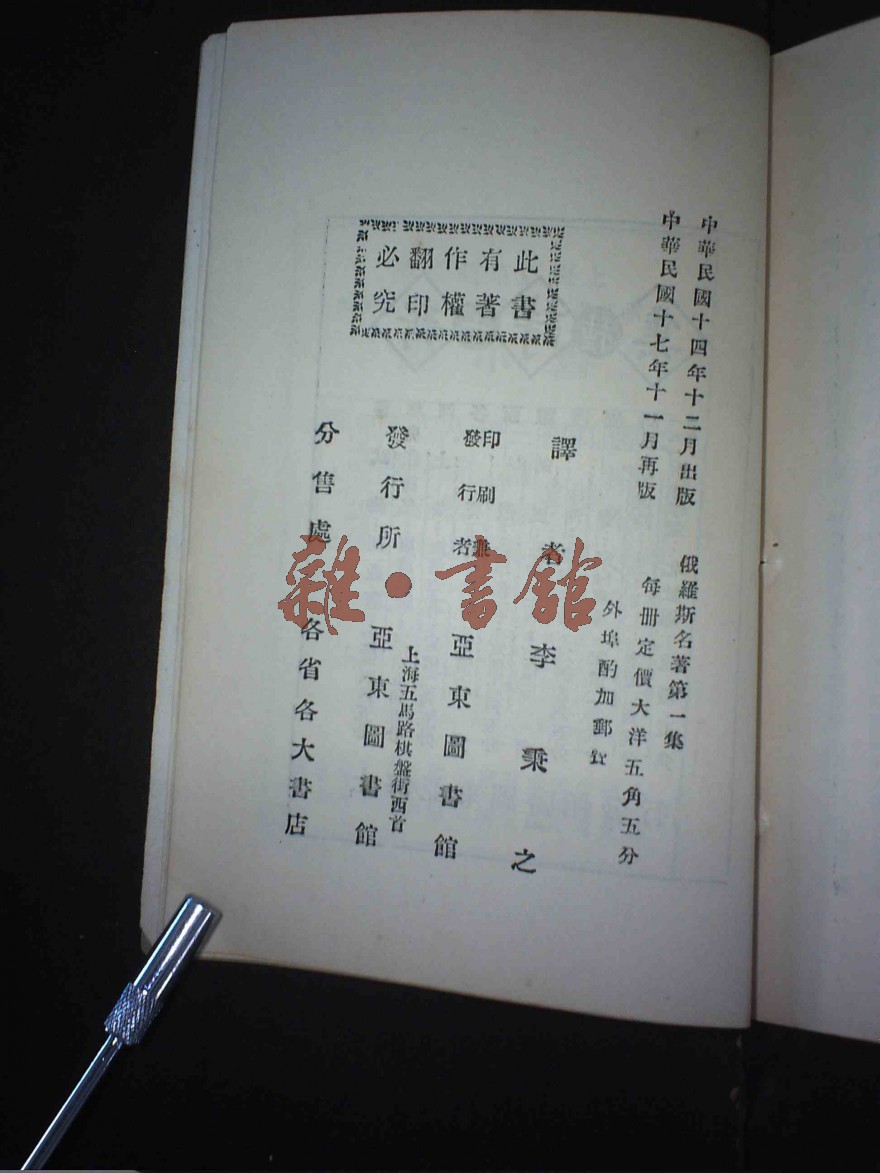 中華民國十四年十二月出版
中華民國十七年十一月再版
俄羅斯名著第一集
每冊定價大洋五角五分
外埠酌加郵費
此書
有著
作權
翻印
必究
譯者 李秉之
印刷兼
發行者 亞東圖書館
上海五馬路棋盤街西首
發行所 亞東圖書館
分售處 各省各大書店
雜·書館